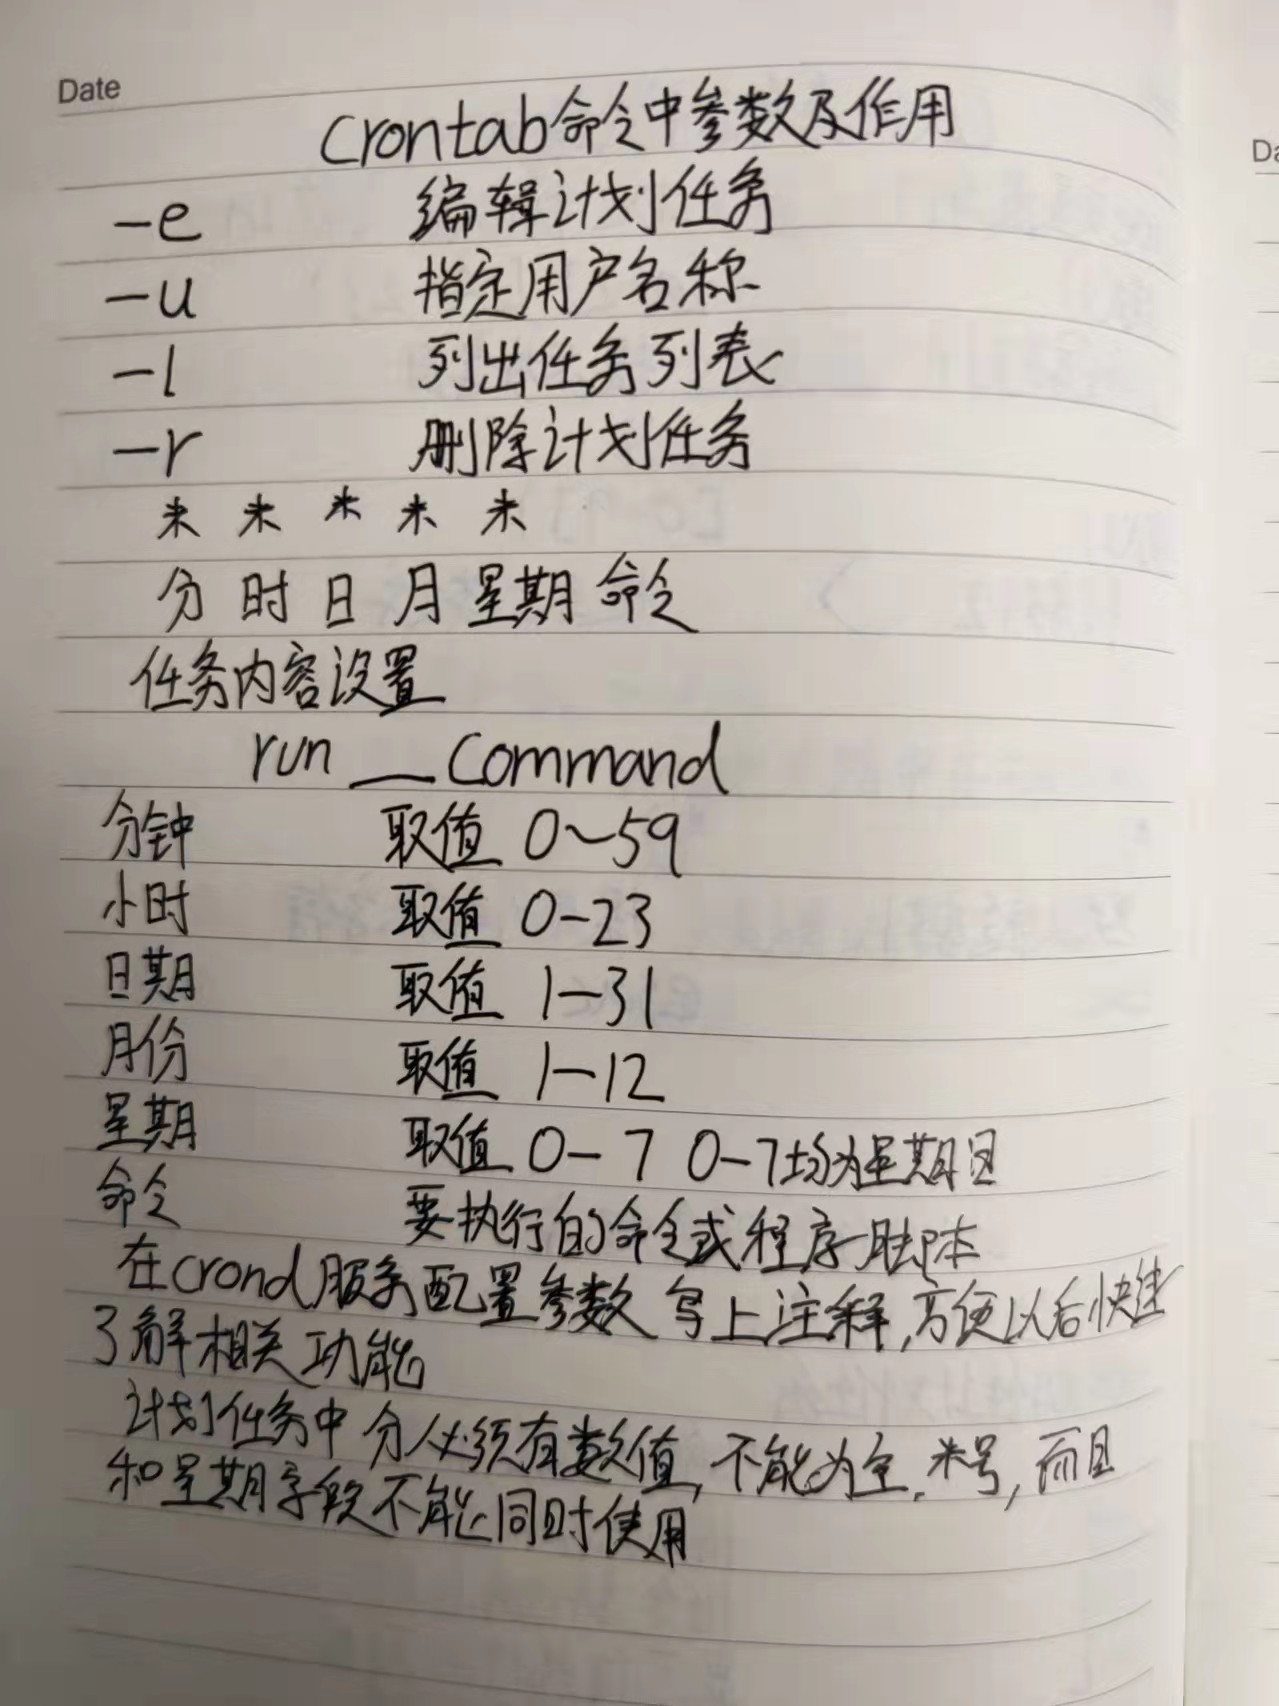 Date
Crontab命令中参数及作用
-e 编辑计划任务
-u 指定用户名称
-l 列出任务列表
-r 删除计划任务
* * * * *
分 时 日 月 星期 命令
任务内容设置
run __ Command
分钟 取值 0~59
小时 取值 0-23
日期 取值 1-31
月份 取值 1-12
星期 取值 0-7 0-7均为星期日
命令 要执行的命令或程序脚本
在crond服务配置参数写上注释,方便以后快速
了解相关功能
计划任务中 分必须有数值,不能为空.*号,而且
和星期字段不能同时使用